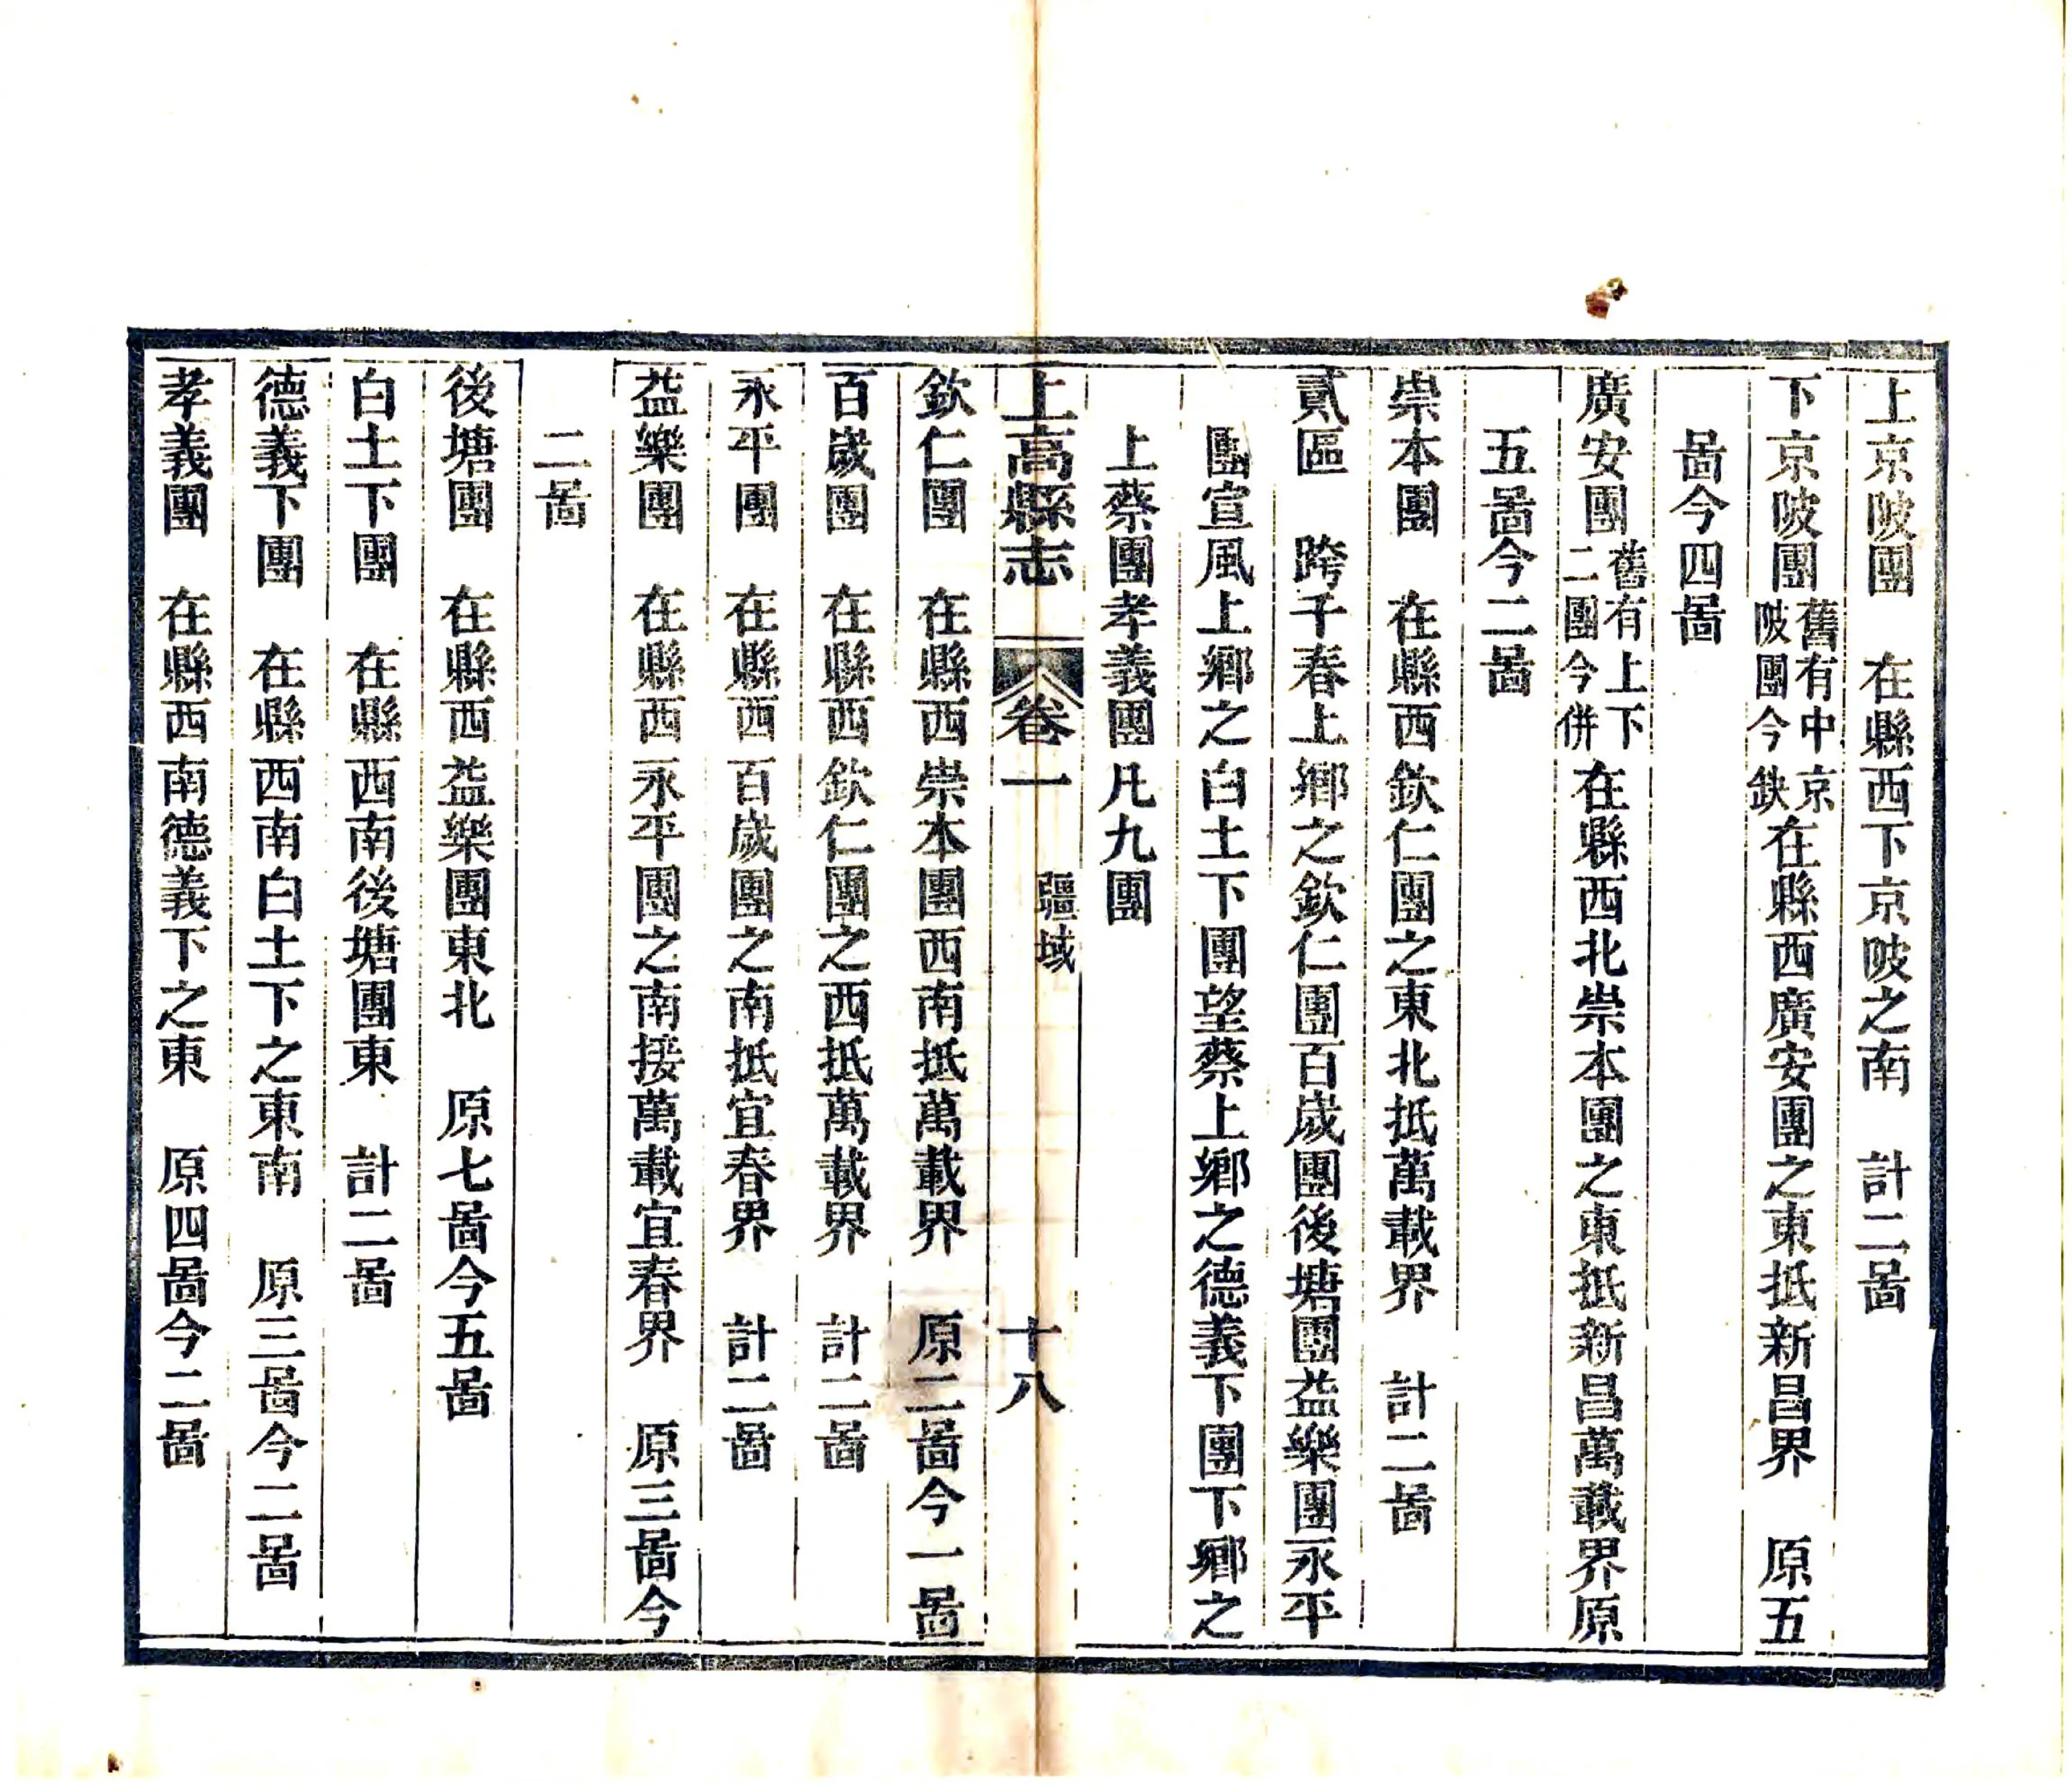 上京陂團　在縣西下京陂之南　計二啚
下京陂團舊有中京陂團今缺在縣西廣安團之東抵新昌界　原五
啚今四啚
廣安團舊有上下二團今併在縣西北崇本團之東抵新昌萬載界原
五啚今二啚
崇本團　在縣西欽仁團之東北抵萬載界　計二啚
貳區　跨千春上鄉之欽仁團百歲團後塘團益樂團永平
團宣風上鄉之白土下團望蔡上鄉之德義下團下鄉之
上蔡團孝義團凡九團
上高縣志　卷一　疆域　十八
欽仁團　在縣西崇本團西南抵萬載界　原二啚今一啚
百歲團　在縣西欽仁團之西抵萬載界　計二啚
永平團　在縣西百歲團之南抵宜春界　計二啚
益樂團　在縣西永平團之南接萬載宜春界　原三啚今
二啚
後塘團　在縣西益樂團東北　原七啚今五啚
白土下團　在縣西南後塘團東　計二啚
德義下團　在縣西南白土下之東南　原三啚今二啚
孝義團　在縣西南德義下之東　原四啚今二啚